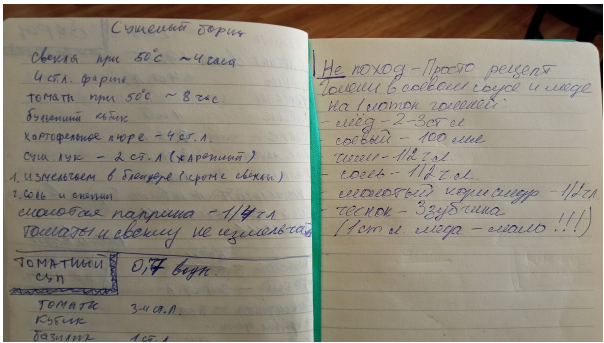 Сушеный борщ
свекла при 50°С ~ 4 часа
4 ст.л. фарша
томаты при 50°С ~ 8 час
бульонный кубик
картофельное пюре - 4 ст.л.
суш лук - 2 ст.л (жареный)
1. измельчаем в блендере (кроме свеклы)
2. соль и специи
молотая паприка - 1/4 ч л
томаты и свеклу не измельчать
ТОМАТНЫЙ СУП
0,7 воды
томаты 3-4 ст.л.
кубик
базилик 1 ст.л
Не поход - Просто рецепт
Голени в соевом соусе и меде
на 1 лоток голеней:
- мёд - 2-3 ст л
- соевый - 100 мл
- чили - 1/2 ч.л.
- соль - 1/2 ч.л.
- молотый кориандр - 1/2 чл
- чеснок - 3 зубчика
(1 ст л меда - мало !!!)